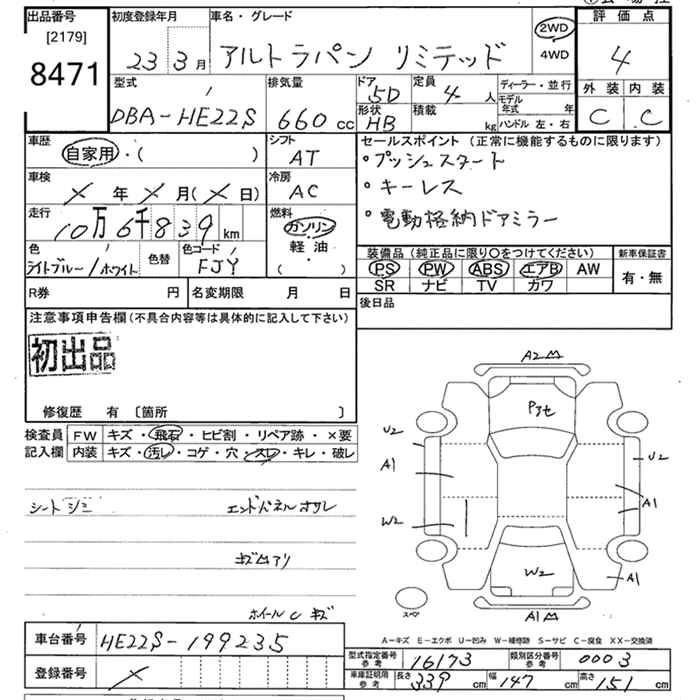 出品番号 初度登録年月 車名・グレード 評価点
[2179]
8471
23年 3月 アルトラパン リミテッド 2WD 4WD 4
型式 排気量 ドア 5D 定員 4人 ディーラー・並行 外装 内装
DBA-HE22S 660cc 形状 HB 積載 kg モデル年式 年 ハンドル 左・右 C C
車歴 シフト セールスポイント(正常に機能するものに限ります)
自家用・( ) AT ・プッシュスタート
車検 冷房 ・キーレス
×年×月(×日) AC
走行 燃料 ・電動格納ドアミラー
10万6千839km ガソリン
色 色替 色コード 軽油 装備品(純正品に限り〇をつけてください) 新車保証書
ライトブルー/ホワイト FJY ( ) PS PW ABS エアB AW 有・無
SR ナビ TV カワ
R券 円 名変期限 月 日 後日品
注意事項申告欄(不具合内容等は具体的に記入して下さい)
初出品
修復歴 有 〔箇所 〕
検査員 FW キズ・飛石・ヒビ割・リペア跡・×要
記入欄 内装 キズ・汚レ・コゲ・穴・スレ・キレ・破レ
シートシミ エンドパネルオサレ
キズ凹アリ
ホイールCキズ
A2凹
Pアセ
U2
A1
W2
U2
A1
W2
A1
スペア
A1凹
車台番号 HE22S-199235
登録番号 ×
A-キズ E-エクボ U-凹み W-補修跡 S-サビ C-腐食 XX-交換済
型式指定番号 参考 16173 類別区分番号 参考 0003
車庫証明用 参考 長さ 339cm 幅 147cm 高さ 151cm